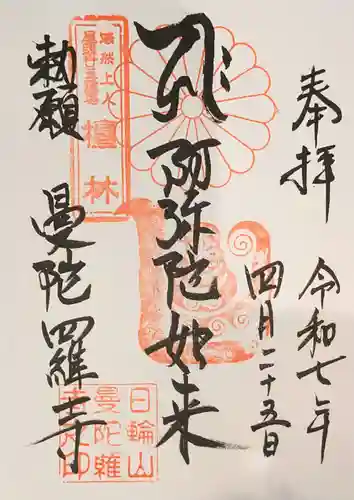 奉拝
令和七年
四月二十五日
阿弥陀如来
勅願
曼陀羅寺
法然上人
檀林
日輪山
曼陀羅
寺之印